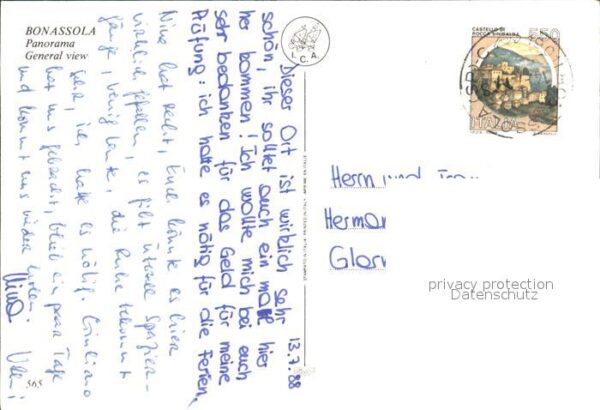 BONASSOLA
Panorama
General view
I. C. A.
CASTELLO DI
ROCCA SINIBALDA
550
ITALIA
13.7.88
Dieser Ort ist wirklich sehr
schön, ihr solltet auch ein mal hier
her kommen! Ich wollte mich bei euch
sehr bedanken für das Geld für meine
Prüfung: ich hatte es nötig für die Ferien.
Nina hat recht, Euch könnte es hier
wirklich gefallen, es gibt überall Spazier-
gänge, wenig Leute, die Ruhe bekommt
ich hatte es nötig. Giuliano
hat uns gebracht, blieb ein paar Tage
und kommt uns wieder holen.
Nina
Herrn und
Herman
Glar
privacy protection
Datenschutz
565